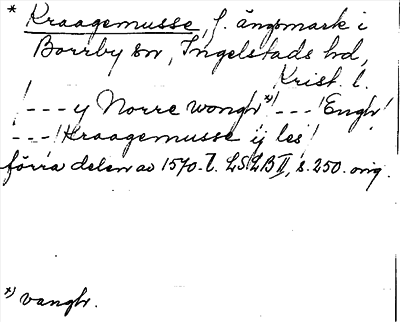 * Kraagemusse, f. ängsmark i
Borrby sn, Ingelstads hd,
Krist. l.
/ - - - y Norre wongh *) / - - - / Engh /
- - - / Kraagemusse ij les /
förra delen av 1570-t. LSLB II, s. 250. orig.
*) vangh.